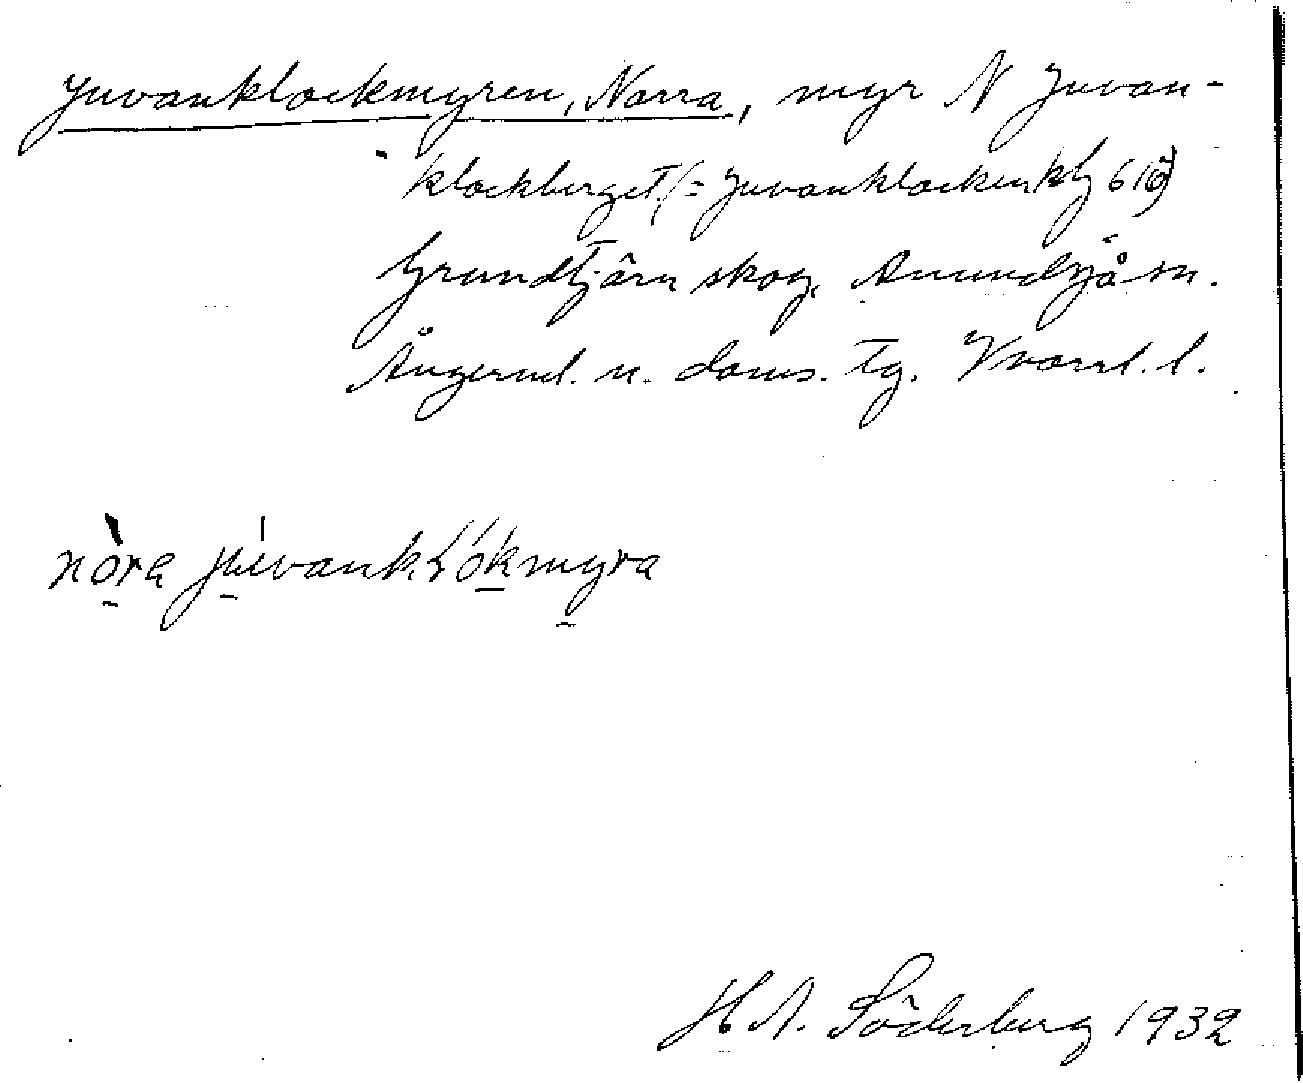 Juvanklockmyren, Norra, myr N Juvan-
klockberget (= Juvanklocken kbg 616)
Grundtjärn skog, Anundsjö sn.
Ångerml. n. doms. tg. Vnorrl. l.
nòra júvankłókmyra
H A. Söderberg 1932